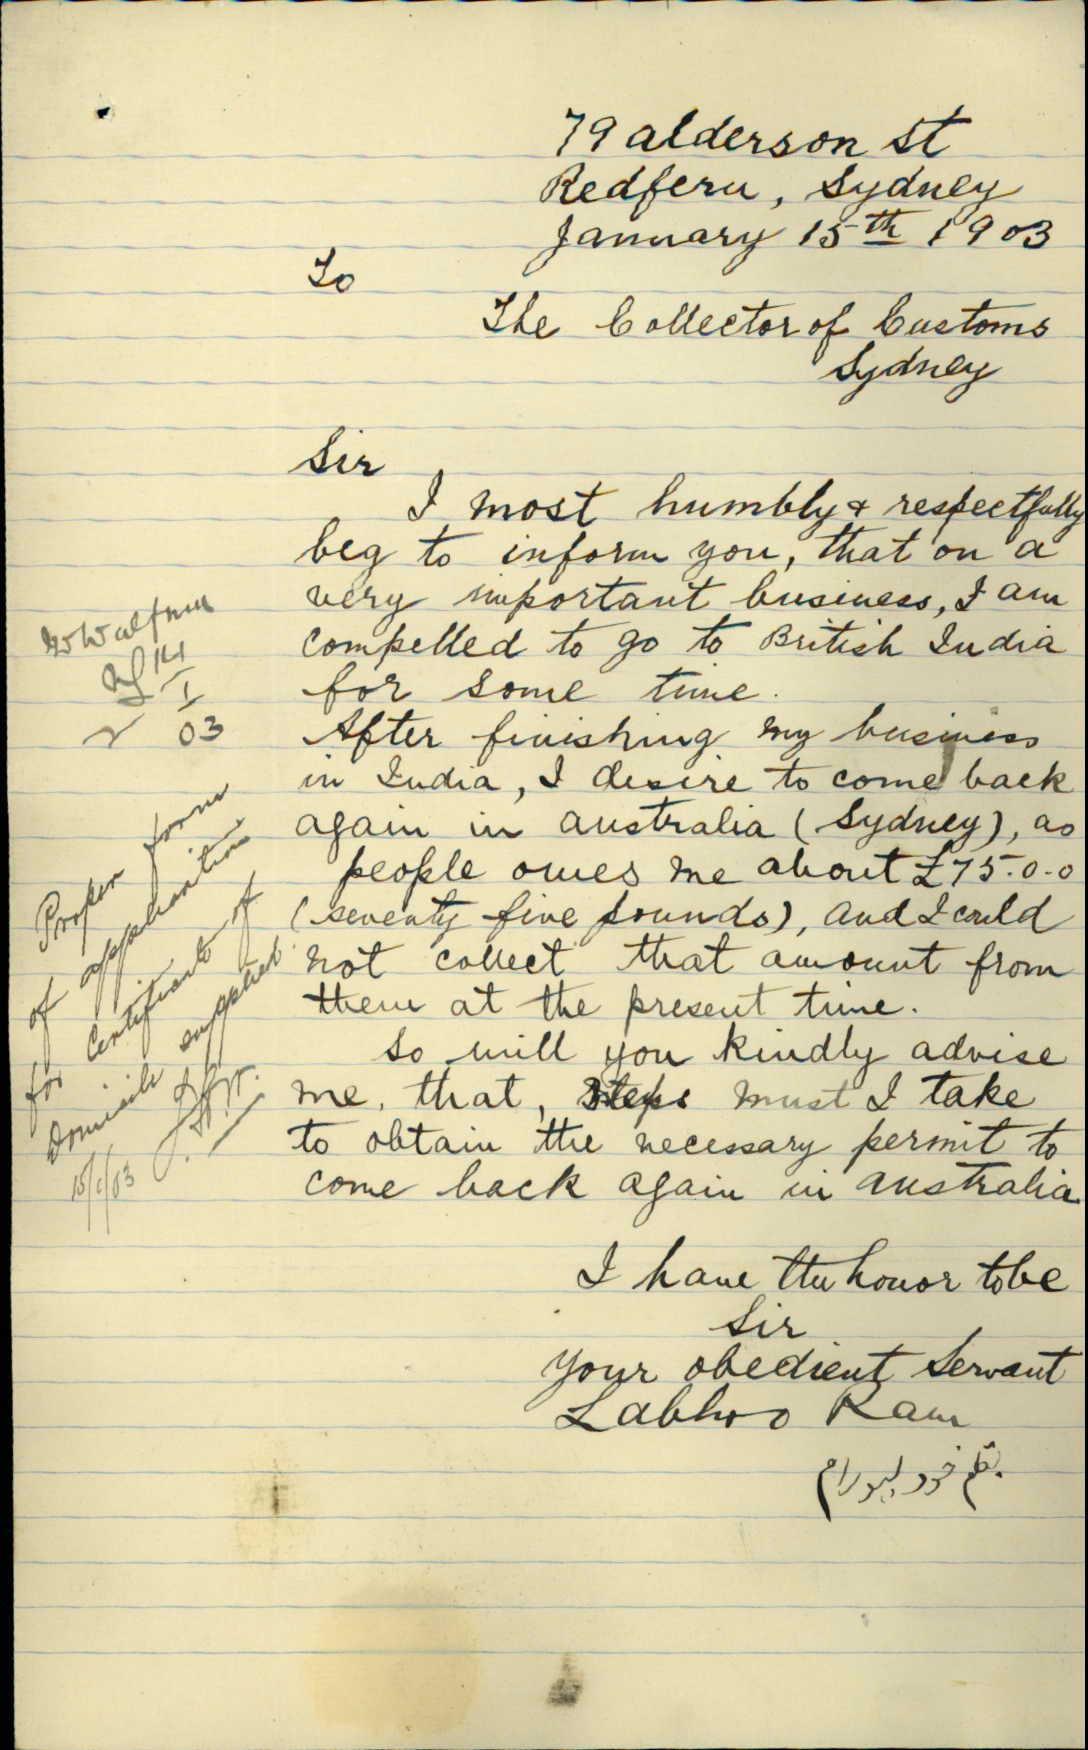 79 alderson st
Redfern, Sydney
January 15th 1903
To
The Collector of Customs
Sydney
Sir
I most humbly & respectfully
beg to inform you, that on a
very important business, I am
compelled to go to British India
for some time.
After finishing my business
in India, I desire to come back
again in australia (Sydney), as
people owes me about £75.0.0
(seventy five pounds), and I could
not collect that amount from
them at the present time.
So will you kindly advise
me, that, steps must I take
to obtain the necessary permit to
come back again in australia
I have the honor to be
Sir
your obedient Servant
Labhoo Ram
بقلم خود لبهو رام
03
Proper forms
of application
for Certificate of
Domicile supplied
15/1/03